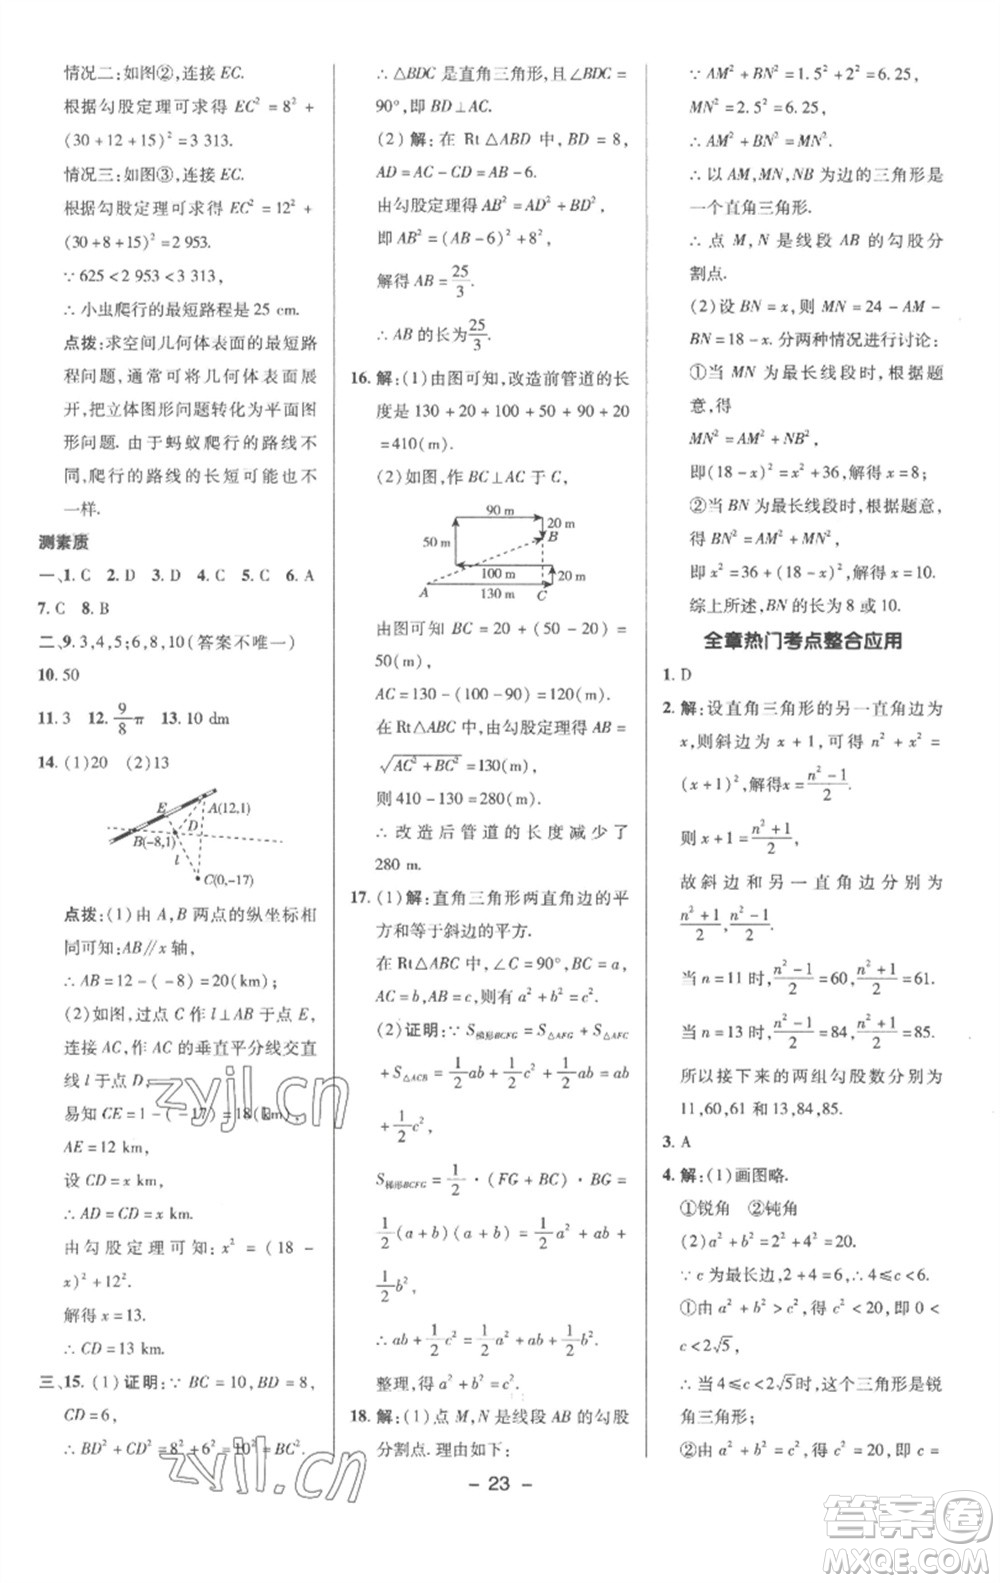 情况二:如图②,连接 EC.
根据勾股定理可求得 EC² = 8² +
(30 + 12 + 15)² = 3 313.
情况三:如图③,连接 EC.
根据勾股定理可求得 EC² = 12² +
(30 + 8 + 15)² = 2 953.
∵ 625 < 2 953 < 3 313,
∴ 小虫爬行的最短路程是 25 cm.
点拨:求空间几何体表面的最短路
程问题,通常可将几何体表面展
开,把立体图形问题转化为平面图
形问题. 由于蚂蚁爬行的路线不
同,爬行的路线的长短可能也不
一样.
测素质
一、1. C 2. D 3. D 4. C 5. C 6. A
7. C 8. B
二、9. 3,4,5;6,8,10(答案不唯一)
10. 50
11. 3 12. 9/8 π 13. 10 dm
14. (1)20 (2)13
E A(12,1)
D
B(-8,1) l
C(0,-17)
点拨:(1)由 A,B 两点的纵坐标相
同可知:AB∥x 轴,
∴ AB = 12 - (-8) = 20(km).
(2)如图,过点 C 作 l⊥AB 于点 E,
连接 AC,作 AC 的垂直平分线交直
线 l 于点 D,
易知 CE = 1 - (-17) = 18(km),
AE = 12 km,
设 CD = x km.
∴ AD = CD = x km.
由勾股定理可知:x² = (18 -
x)² + 12².
解得 x = 13.
∴ CD = 13 km.
三、15. (1)证明:∵ BC = 10,BD = 8,
CD = 6,
∴ BD² + CD² = 8² + 6² = 10² = BC².
∴ △BDC 是直角三角形,且∠BDC =
90°,即 BD⊥AC.
(2)解:在 Rt△ABD 中,BD = 8,
AD = AC - CD = AB - 6.
由勾股定理得 AB² = AD² + BD²,
即 AB² = (AB - 6)² + 8²,
解得 AB = 25/3.
∴ AB 的长为 25/3.
16. 解:(1)由图可知,改造前管道的长
度是 130 + 20 + 100 + 50 + 90 + 20
= 410(m).
(2)如图,作 BC⊥AC 于 C,
90 m
20 m
50 m B
100 m 20 m
A 130 m C
由图可知 BC = 20 + (50 - 20) =
50(m),
AC = 130 - (100 - 90) = 120(m).
在 Rt△ABC 中,由勾股定理得 AB =
√(AC² + BC²) = 130(m),
则 410 - 130 = 280(m).
∴ 改造后管道的长度减少了
280 m.
17. (1)解:直角三角形两直角边的平
方和等于斜边的平方.
在 Rt△ABC 中,∠C = 90°,BC = a,
AC = b,AB = c,则有 a² + b² = c².
(2)证明:∵ S梯形BCFG = S△AFG + S△AFC
+ S△ACB = 1/2 ab + 1/2 c² + 1/2 ab = ab
+ 1/2 c²,
S梯形BCFG = 1/2 · (FG + BC) · BG =
1/2 (a + b)(a + b) = 1/2 a² + ab +
1/2 b²,
∴ ab + 1/2 c² = 1/2 a² + ab + 1/2 b².
整理,得 a² + b² = c².
18. 解:(1)点 M,N 是线段 AB 的勾股
分割点. 理由如下:
∵ AM² + BN² = 1. 5² + 2² = 6. 25,
MN² = 2. 5² = 6. 25,
∴ AM² + BN² = MN².
∴ 以 AM,MN,NB 为边的三角形是
一个直角三角形.
∴ 点 M,N 是线段 AB 的勾股分
割点.
(2)设 BN = x,则 MN = 24 - AM -
BN = 18 - x. 分两种情况进行讨论:
①当 MN 为最长线段时,根据题
意,得
MN² = AM² + NB²,
即(18 - x)² = x² + 36,解得 x = 8;
②当 BN 为最长线段时,根据题意,
得 BN² = AM² + MN²,
即 x² = 36 + (18 - x)²,解得 x = 10.
综上所述,BN 的长为 8 或 10.
全章热门考点整合应用
1. D
2. 解:设直角三角形的另一直角边为
x,则斜边为 x + 1,可得 n² + x² =
(x + 1)²,解得 x = (n² - 1)/2.
则 x + 1 = (n² + 1)/2,
故斜边和另一直角边分别为
(n² + 1)/2,(n² - 1)/2.
当 n = 11 时,(n² - 1)/2 = 60,(n² + 1)/2 = 61.
当 n = 13 时,(n² - 1)/2 = 84,(n² + 1)/2 = 85.
所以接下来的两组勾股数分别为
11,60,61 和 13,84,85.
3. A
4. 解:(1)画图略.
①锐角 ②钝角
(2)a² + b² = 2² + 4² = 20.
∵ c 为最长边,2 + 4 = 6,∴ 4 ≤ c < 6.
①由 a² + b² > c²,得 c² < 20,即 0 <
c < 2√5,
∴ 当 4 ≤ c < 2√5 时,这个三角形是锐
角三角形;
②由 a² + b² = c²,得 c² = 20,即 c =
- 23 -
zyjl.cn
zyjl.cn
答案圈
MXQE.COM